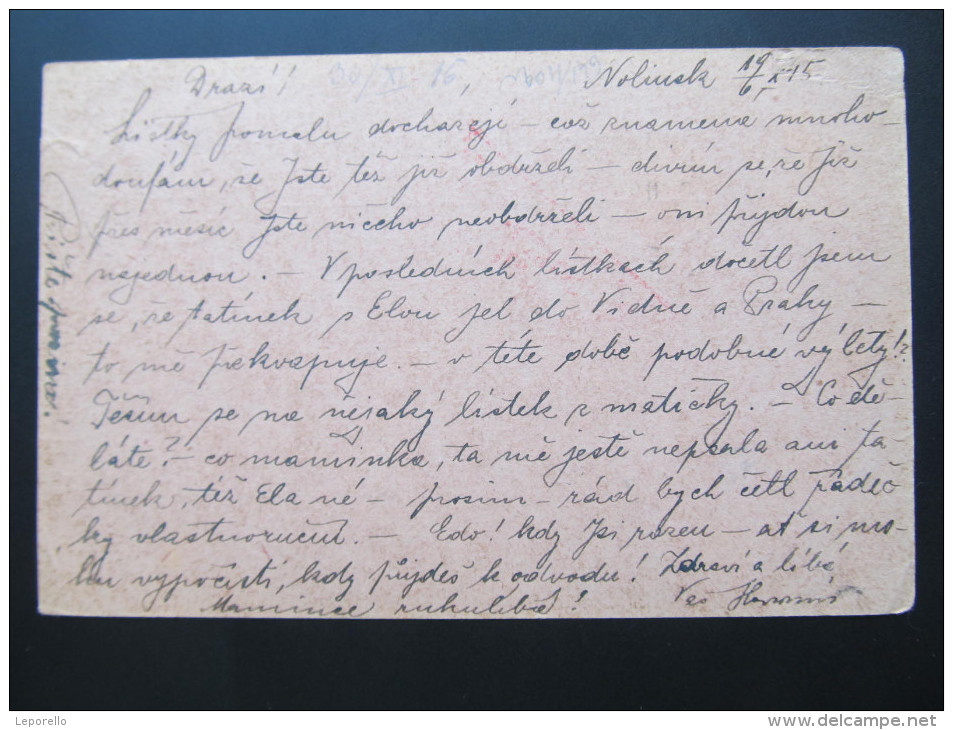 Drazí! Nolinsk 19/6 X 15
Lístky pomalu docházejí – což znamena mnoho –
doufám, že Jste též již obdrželi – divím se, že Již
přes měsíc Jste ničeho neobdrželi – oni přijdou
najednou. – V posledních lístkách dočetl jsem
se, že tatínek s Elou jel do Vídně a Prahy –
to mě překvapuje – v této době podobné výlety!?
Těším se na nějaký lístek z matičky. – Co dě-
láte? – co maminka, ta mě ještě nepsala ani ta-
tínek, též Ela né – prosím – rád bych četl řádeč
ky vlastnoruční. – Edo! kdy Jsi rozen – ať si mo-
hu vypočísti, kdy půjdeš k odvodu! Zdraví a líbá
Mamince rukulíbá! Váš
Pište
Leporello
www.delcampe.net